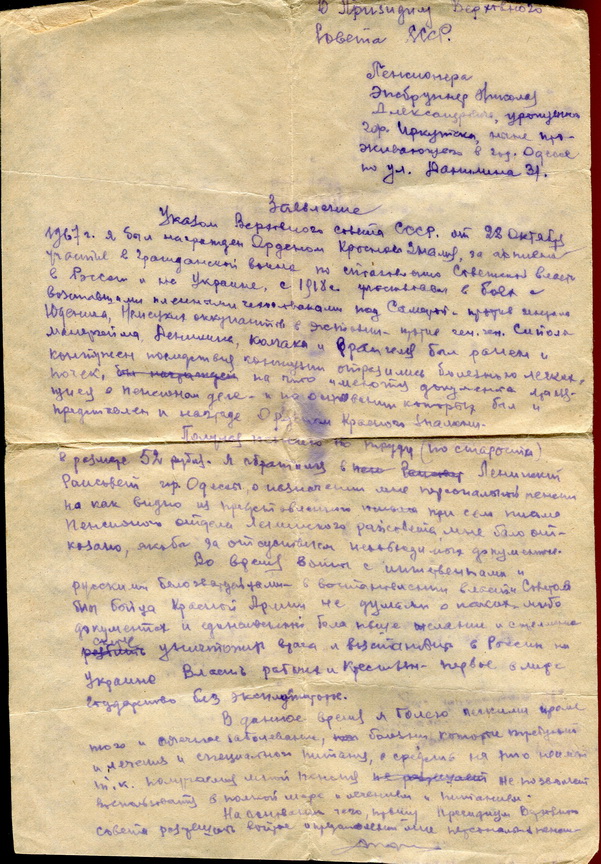 В Призидиу Верховного
Совета СССР.
Пенсионера
Николая
Александр, урожценна
гор. Иркутска, ныне про-
живающего в гор. Одессе
по ул. Данилина 31.
Заявление
Указом Верховного совета СССР. от 28 октября
1967 г. я был награжден Орденом Красного Знамя, за активное
участие в Гражданской войне по Советской власти
в России и на Украине, с 1918 г. участвовал в боях с
под Самарой - против
Юденича, против ген.
Деникина, Колчака и Врангеля был ранен и
контужен последствия контузии отразились болезнью легких,
почек, на что имеются документа
в пенсионом деле - и на основании которых был и
представлен к награде Орденом Красного Знамени.
Получая пенсию по труду (по старости)
в размере 52 рубля. Я обратился в Ленинский
Райсовет гор. Одессы, о назначении мне персональной пенсии
но как видно из представленного при сем письма
Пенсионного отдела Ленинского райсовета, мне было от-
казано, якобы за отсутствием необходимых документов.
Во время войны с интервентами и
русскими белогвардейцами - в востановлении власти Советов
мы бойца Красной Армии не думали о каких либо
документах и было наше желание и стремле-
ские уничтожить врага и восстановить в России и на
Украине Власть рабочих и Крестьян - первое в мире
Государство без эксплуататоров.
В данное время я болею
и заболевание, болезни которые требуют
и лечения и специального питания, а средств на это
т.к. получаемая мной пенсия не позволяет
воспользовать в полной мере и лечением и питанием.
На основании чего, прошу Президиум Верховного
совета разрешить вопрос о мне персональной